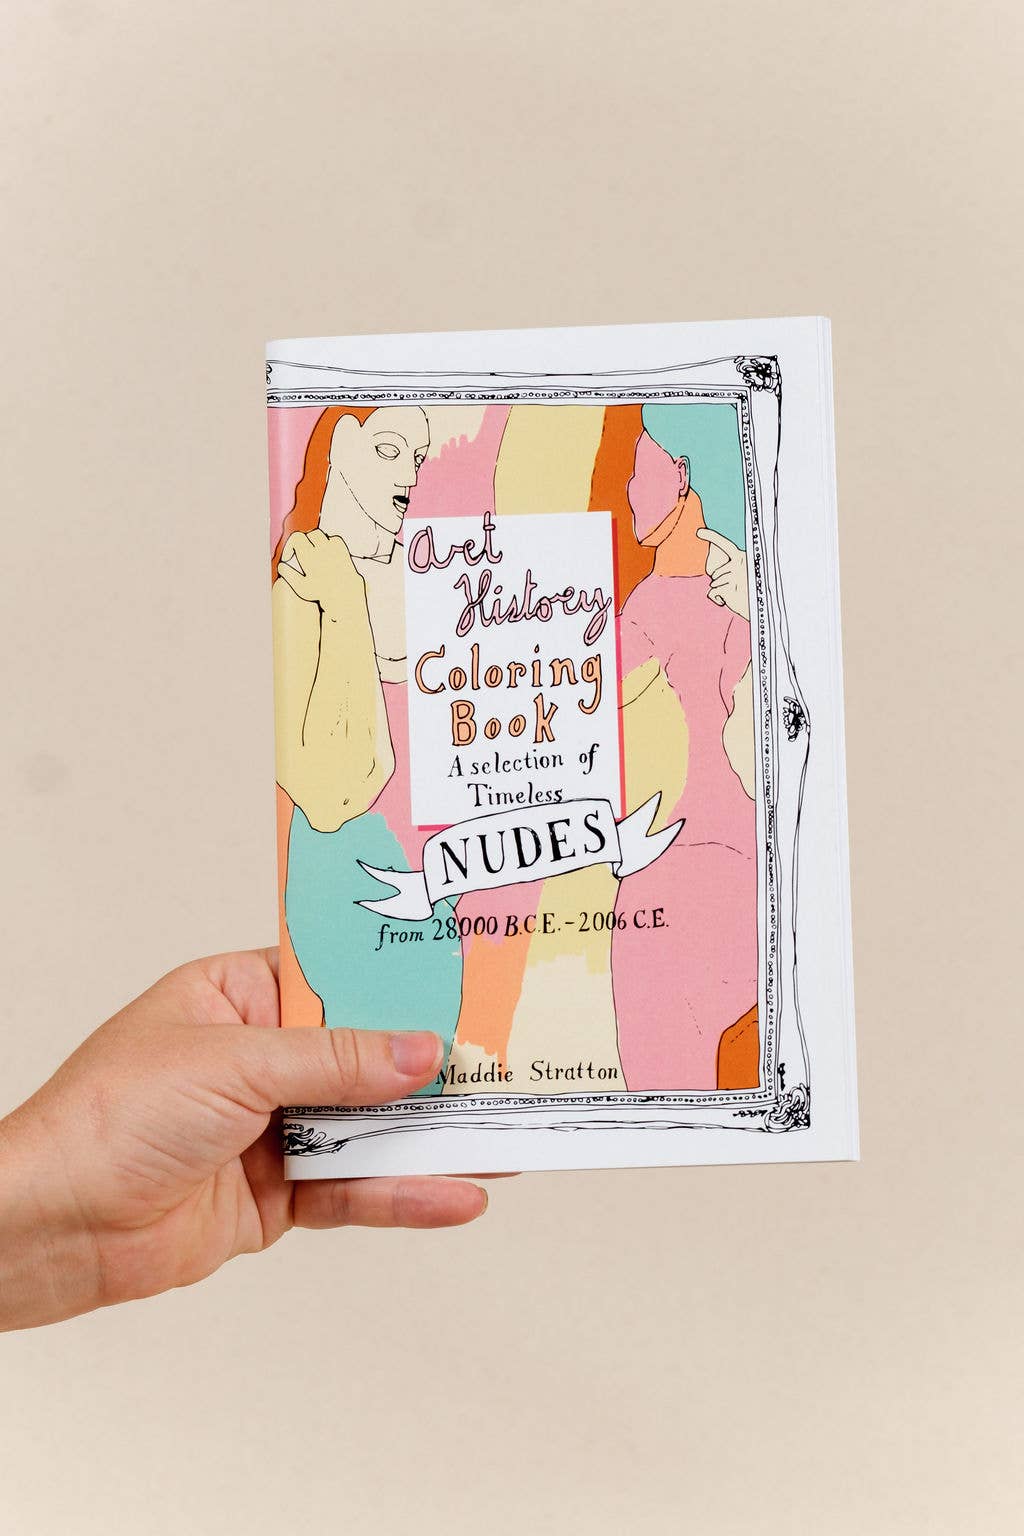 Art
History
Coloring
Book
A selection of
Timeless
NUDES
from 28,000 B.C.E. - 2006 C.E.
Maddie Stratton